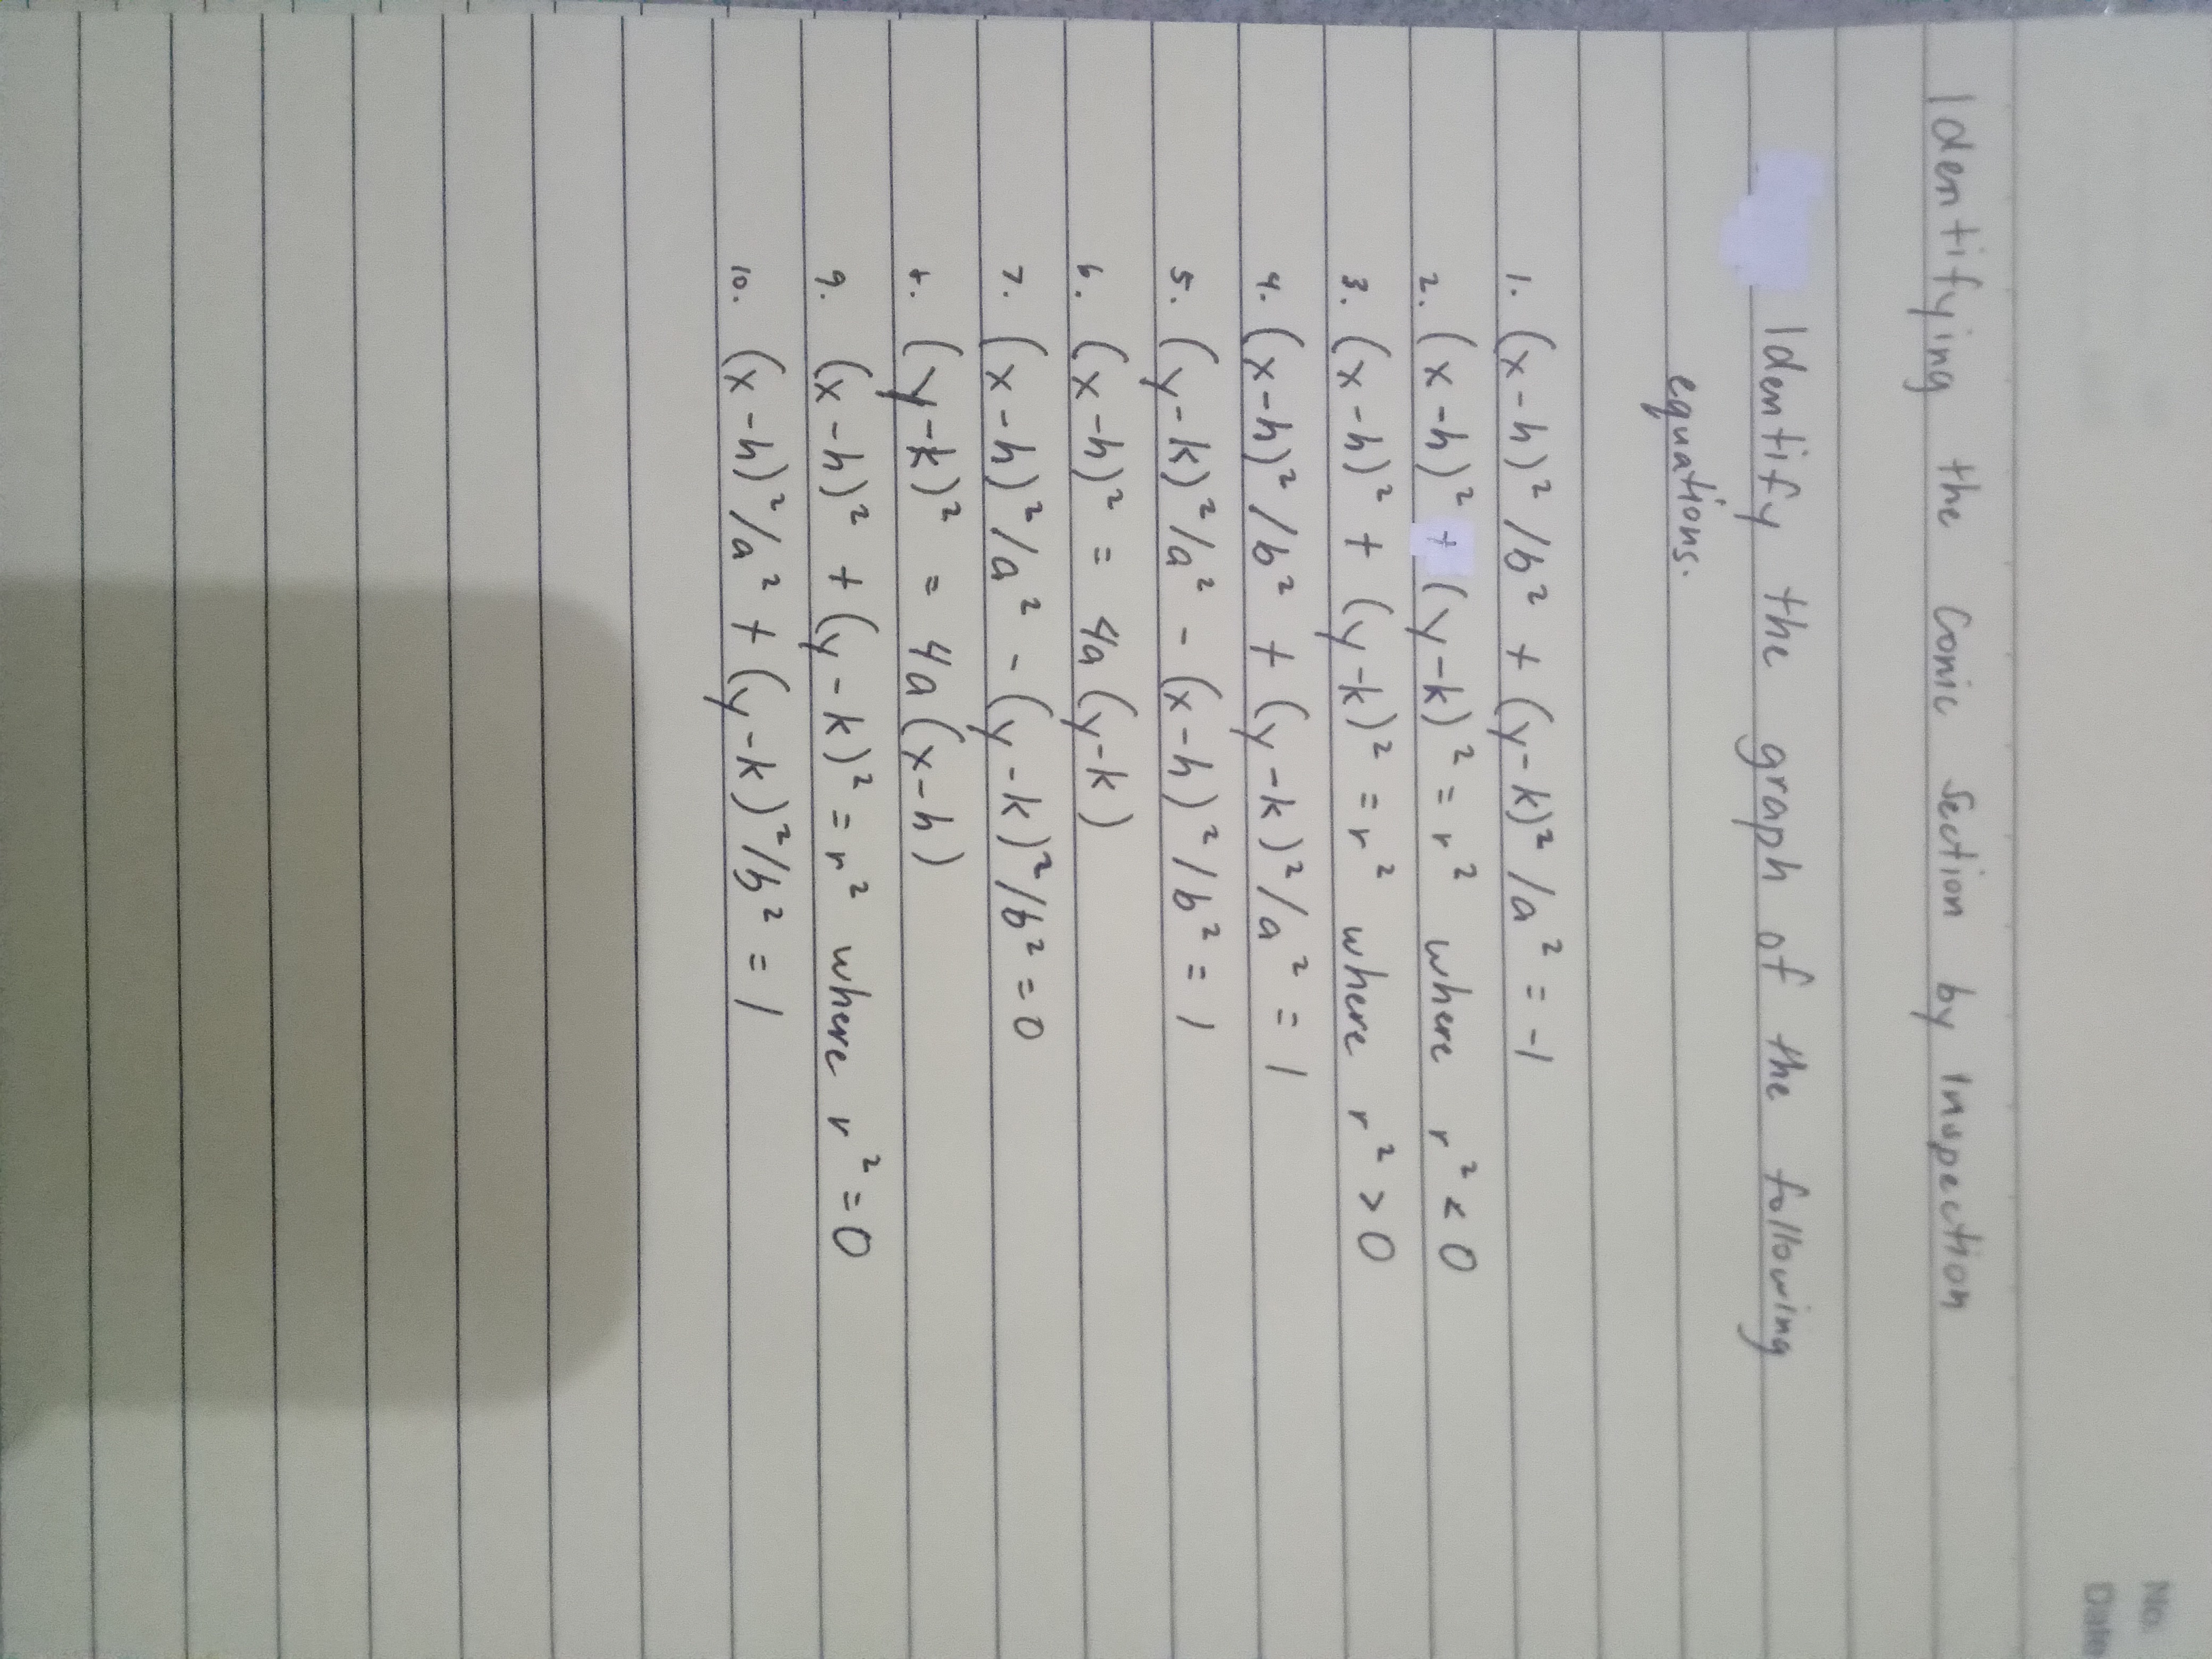 No.
Date
Identifying the Conic Section by Inspection
Identify the graph of the following
equations.
1. (x-h)²/b² + (y-k)²/a² = -1
2. (x-h)² + (y-k)² = r² where r² < 0
3. (x-h)² + (y-k)² = r² where r² > 0
4. (x-h)²/b² + (y-k)²/a² = 1
5. (y-k)²/a² - (x-h)²/b² = 1
6. (x-h)² = 4a (y-k)
7. (x-h)²/a² - (y-k)²/b² = 0
8. (y-k)² = 4a (x-h)
9. (x-h)² + (y-k)² = r² where r² = 0
10. (x-h)²/a² + (y-k)²/b² = 1